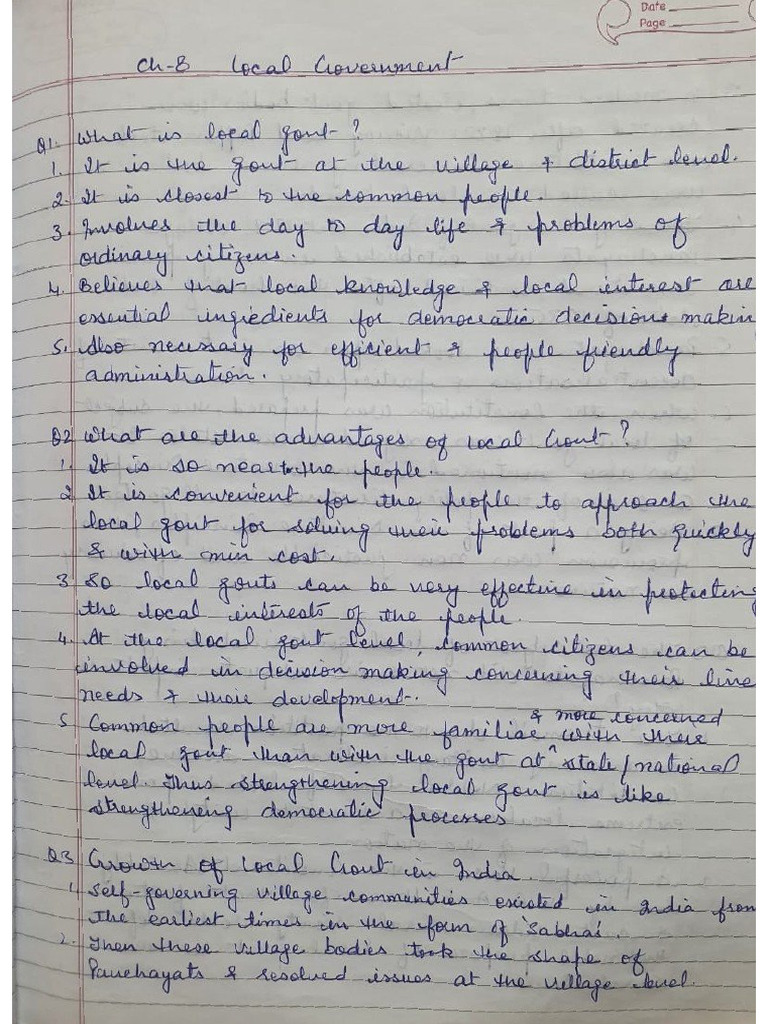 Date
Page
Ch-8 Local Government
Q1. What is local govt?
1. It is the govt at the village & district level.
2. It is closest to the common people.
3. Involves the day to day life & problems of
ordinary citizens.
4. Believes that local knowledge & local interest are
essential ingredients for democratic decision makin
5. Also necessary for efficient & people friendly
administration.
Q2 What are the advantages of Local Govt?
1. It is so near to the people.
2 It is convenient for the people to approach the
local govt for solving their problems both quickly
& with min cost.
3 So local govts can be very effective in protecting
the local interests of the people.
4. At the local govt level, common citizens can be
involved in decision making concerning their
needs & their development.
& more concerned
5 Common people are more familiar ^ with their
local govt than with the govt at state/national
level. Thus strengthening local govt is like
strengthening democratic processes
Q3 Growth of Local Govt in India.
1. Self-governing village communities existed in India from
the earliest times in the form of 'Sabhas'.
2. Then these village bodies took the shape of
Panchayats & resolved issues at the village level.